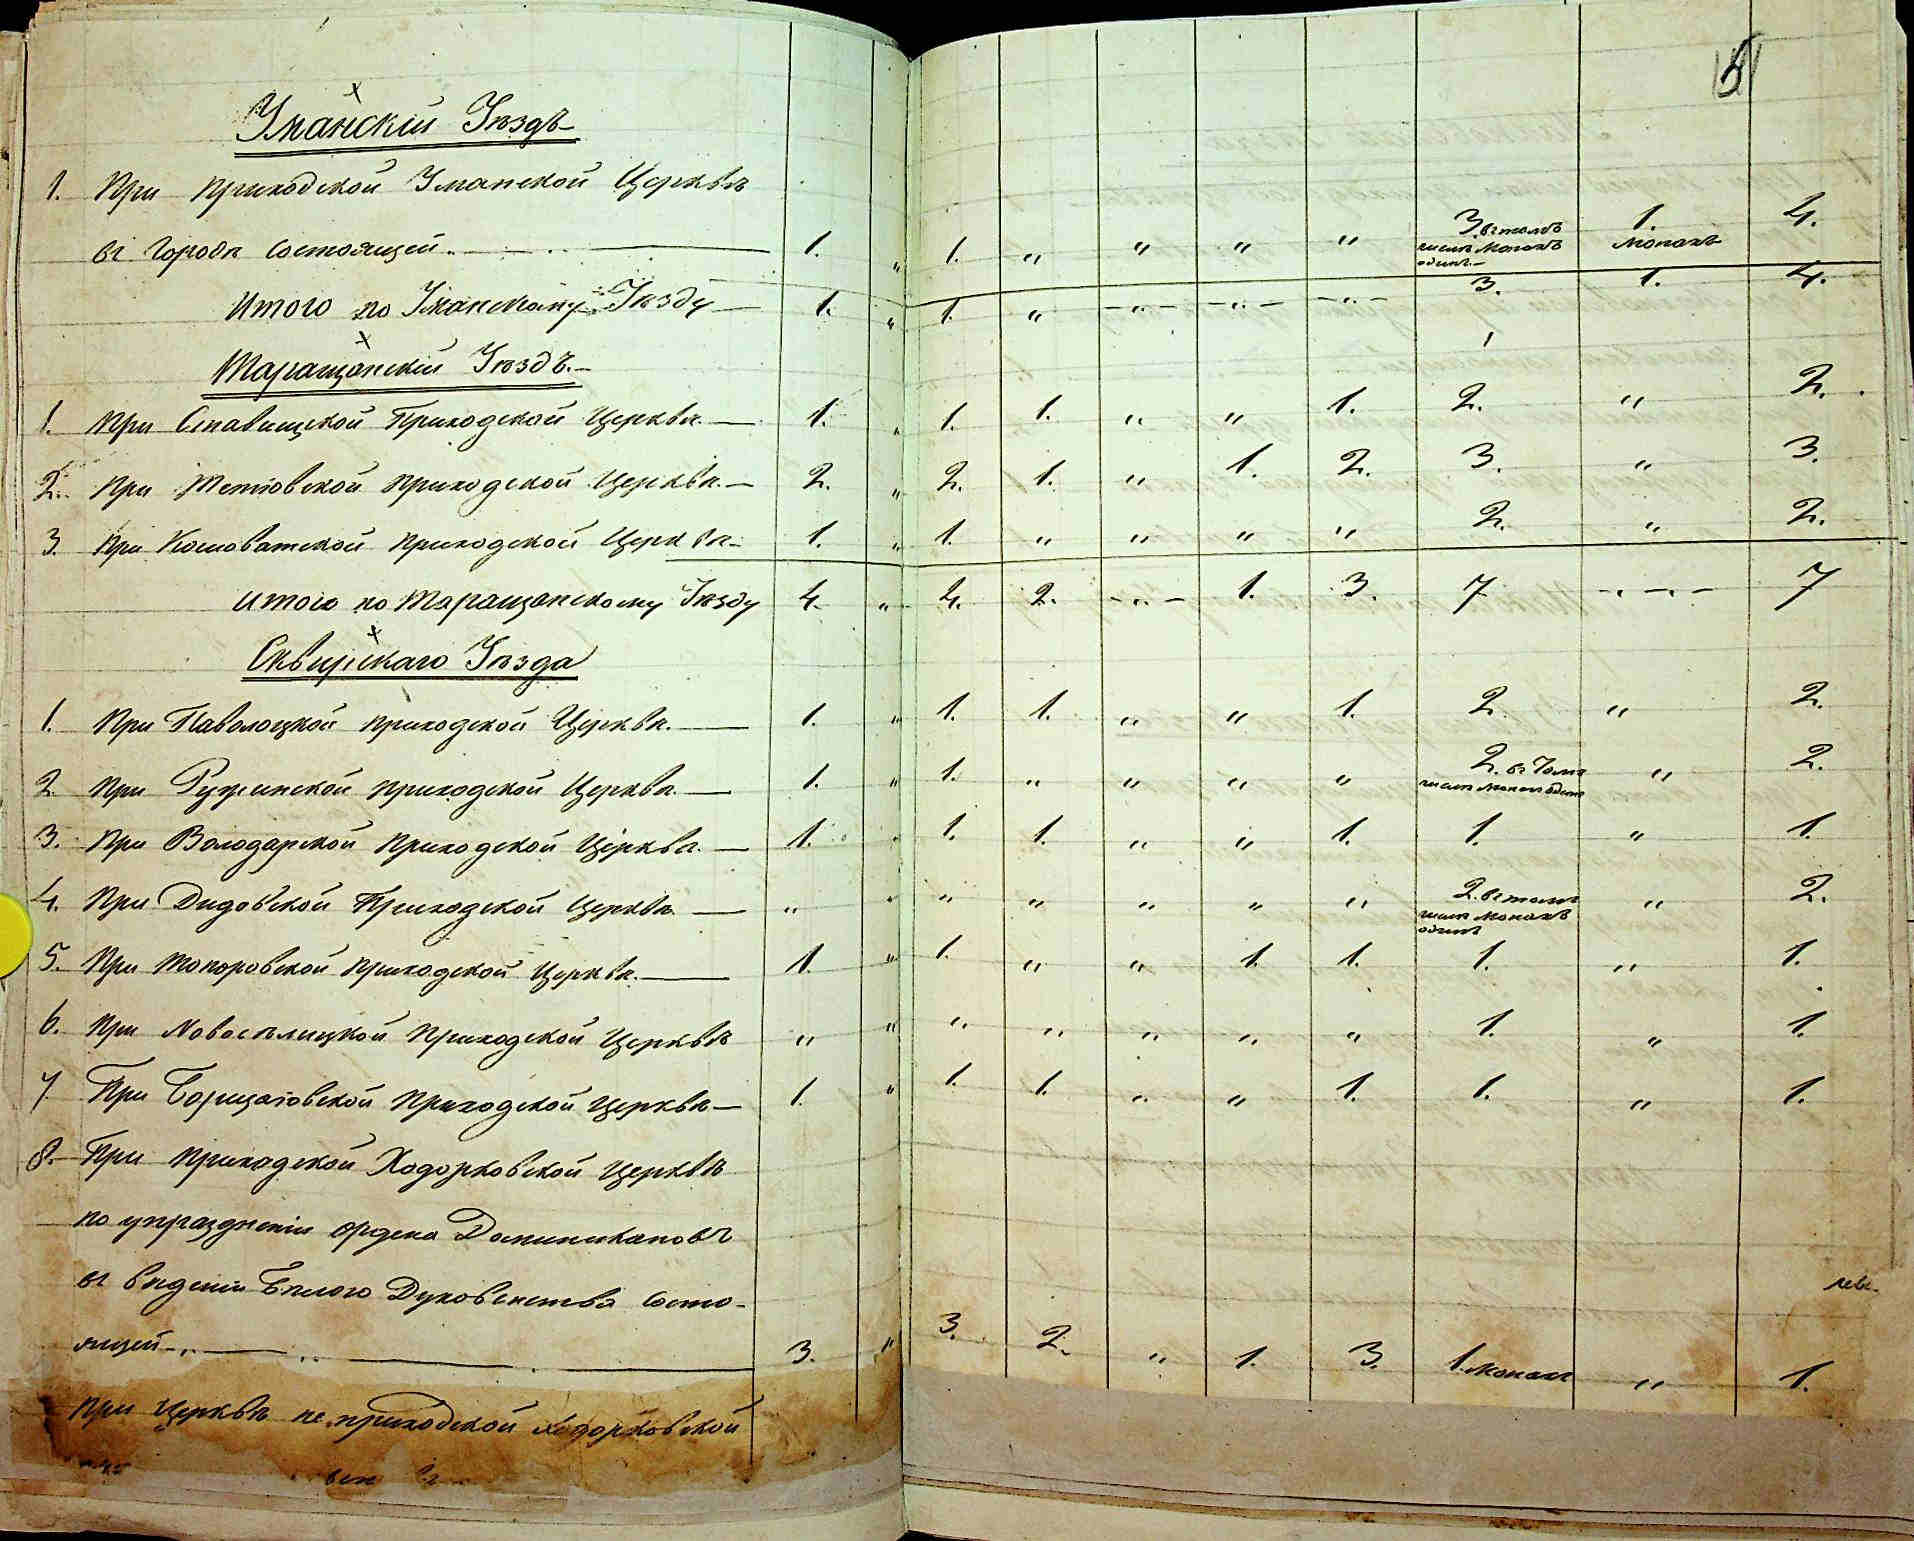 5
Уманскій Уѣздъ
1. При приходской Уманской Церквѣ
въ Городѣ состоящей 1. „ 1. „ „ „ „ 3. въ томъ числѣ Монахъ одинъ 1. Монахъ 4.
Итого по Уманскому Уѣзду 1. „ 1. „ „ „ „ 3. 1. 4.
Таращанскій Уѣздъ.
1. При Ставищской Приходской Церкви 1. „ 1. 1. „ „ 1. 2. „ 2.
2. При Тетіовской приходской Церкви 2. „ 2. 1. „ 1. 2. 3. „ 3.
3. При Кошоватской приходской Церкви 1. „ 1. „ „ „ „ 2. „ 2.
Итого по Таращанскому Уѣзду 4. „ 4. 2. „ 1. 3. 7 „ 7
Сквирскаго Уѣзда
1. При Паволоцкой приходской Церкви 1. „ 1. 1. „ „ 1. 2. „ 2.
2. При Ружинской приходской Церкви 1. „ 1. „ „ „ „ 2. въ томъ числѣ Монахъ одинъ „ 2.
3. При Володарской приходской Церкви 1. „ 1. 1. „ „ 1. 1. „ 1.
4. При Дидовской Приходской Церкви „ „ „ „ „ „ „ 2. въ томъ числѣ Монахъ одинъ „ 2.
5. При Топоровской приходской Церкви 1. „ 1. „ „ 1. 1. 1. „ 1.
6. При Новоселицкой Приходской Церквѣ „ „ „ „ „ „ „ 1. „ 1.
7. При Борщаговской Приходской Церкви 1. „ 1. 1. „ „ 1. 1. „ 1.
8. При приходской Ходорковской Церквѣ
по упразднени ордена Доминикановъ
въ вѣденіи Бѣлого Духовенства состо-
ящей 3. „ 3. 2. „ 1. 3. 1. Монахъ „ 1.
При Церквѣ не приходской Ходорковской